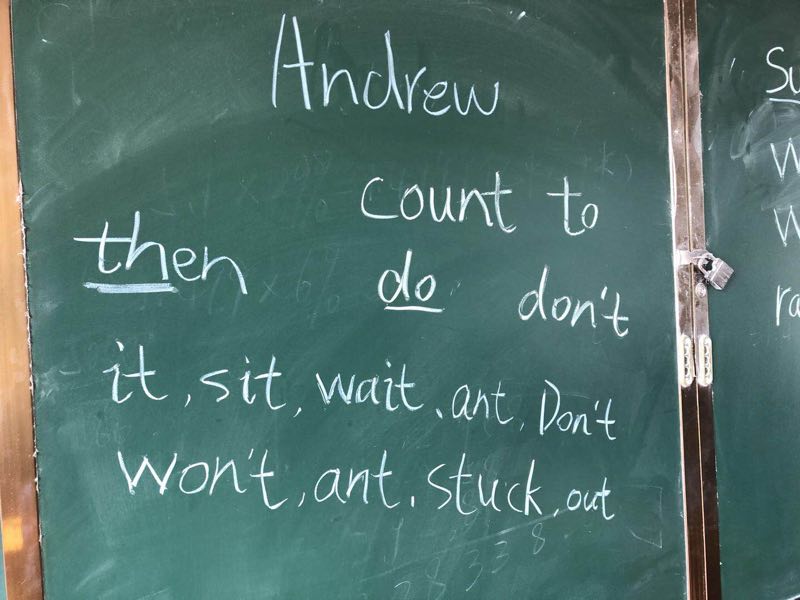 Andrew
count to
then do don't
it, sit, wait, ant, Don't
won't, ant, stuck, out